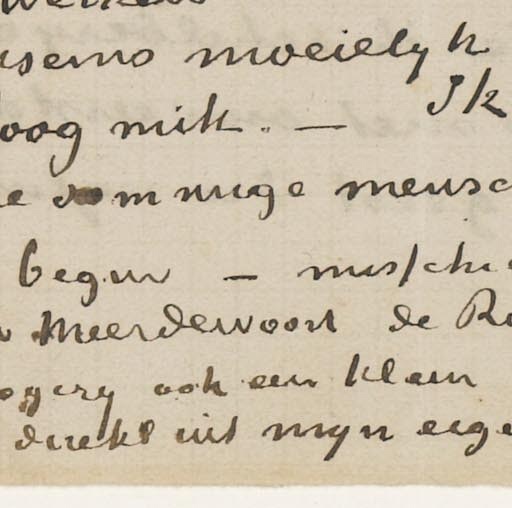 moeielyk
oog mikt. — Ik
e sommige mensc
begin — misschie
Meerdervoort de R
ook een klein
direkt uit myn eige